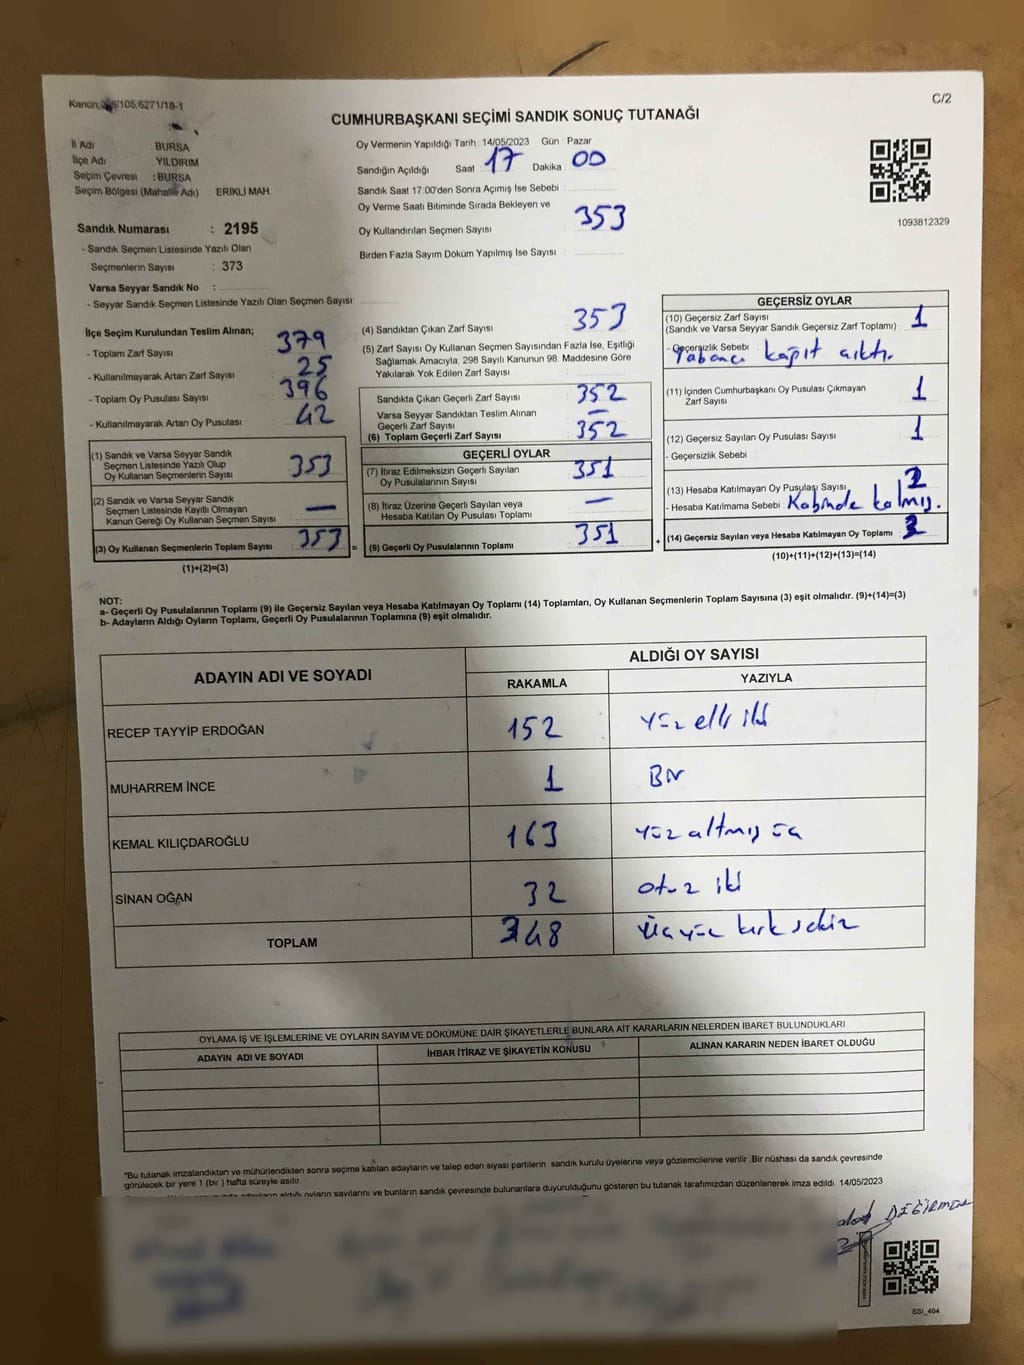 Kanun:298/105,6271/18-1
C/2
CUMHURBAŞKANI SEÇİMİ SANDIK SONUÇ TUTANAĞI
İl Adı BURSA
İlçe Adı YILDIRIM
Seçim Çevresi :BURSA
Seçim Bölgesi (Mahalle Adı) : ERİKLİ MAH.
Oy Vermenin Yapıldığı Tarih :14/05/2023 Gün : Pazar
Sandığın Açıldığı Saat 17 Dakika 00
Sandık Saat 17:00'den Sonra Açımış İse Sebebi :
Oy Verme Saati Bitiminde Sırada Bekleyen ve
Oy Kullandırılan Seçmen Sayısı 353
Birden Fazla Sayım Döküm Yapılmış İse Sayısı :
1093812329
Sandık Numarası : 2195
- Sandık Seçmen Listesinde Yazılı Olan
Seçmenlerin Sayısı : 373
Varsa Seyyar Sandık No :
- Seyyar Sandık Seçmen Listesinde Yazılı Olan Seçmen Sayısı:
İlçe Seçim Kurulundan Teslim Alınan;
- Toplam Zarf Sayısı 379
- Kullanılmayarak Artan Zarf Sayısı 25
- Toplam Oy Pusulası Sayısı 396
- Kullanılmayarak Artan Oy Pusulası 42
(1) Sandık ve Varsa Seyyar Sandık
Seçmen Listesinde Yazılı Olup
Oy Kullanan Seçmenlerin Sayısı 353
(2) Sandık ve Varsa Seyyar Sandık
Seçmen Listesinde Kayıtlı Olmayan
Kanun Gereği Oy Kullanan Seçmen Sayısı —
(3) Oy Kullanan Seçmenlerin Toplam Sayısı : 353 =
(1)+(2)=(3)
(4) Sandıktan Çıkan Zarf Sayısı 353
(5) Zarf Sayısı Oy Kullanan Seçmen Sayısından Fazla İse, Eşitliği
Sağlamak Amacıyla; 298 Sayılı Kanunun 98. Maddesine Göre
Yakılarak Yok Edilen Zarf Sayısı
Sandıkta Çıkan Geçerli Zarf Sayısı : 352
Varsa Seyyar Sandıktan Teslim Alınan
Geçerli Zarf Sayısı : —
(6) Toplam Geçerli Zarf Sayısı : 352
GEÇERLİ OYLAR
(7) İtiraz Edilmeksizin Geçerli Sayılan
Oy Pusulalarının Sayısı 351
(8) İtiraz Üzerine Geçerli Sayılan veya
Hesaba Katılan Oy Pusulası Toplamı —
(9) Geçerli Oy Pusulalarının Toplamı 351 +
GEÇERSİZ OYLAR
(10) Geçersiz Zarf Sayısı
(Sandık ve Varsa Seyyar Sandık Geçersiz Zarf Toplamı) : 1
- Geçersizlik Sebebi : Yabancı kağıt çıktı.
(11) İçinden Cumhurbaşkanı Oy Pusulası Çıkmayan
Zarf Sayısı 1
(12) Geçersiz Sayılan Oy Pusulası Sayısı 1
- Geçersizlik Sebebi :
(13) Hesaba Katılmayan Oy Pusulası Sayısı
- Hesaba Katılmama Sebebi : Kabinde kalmış.
(14) Geçersiz Sayılan veya Hesaba Katılmayan Oy Toplamı :
(10)+(11)+(12)+(13)=(14)
NOT:
a- Geçerli Oy Pusulalarının Toplamı (9) ile Geçersiz Sayılan veya Hesaba Katılmayan Oy Toplamı (14) Toplamları, Oy Kullanan Seçmenlerin Toplam Sayısına (3) eşit olmalıdır. (9)+(14)=(3)
b- Adayların Aldığı Oyların Toplamı, Geçerli Oy Pusulalarının Toplamına (9) eşit olmalıdır.
ADAYIN ADI VE SOYADI
ALDIĞI OY SAYISI
RAKAMLA YAZIYLA
RECEP TAYYİP ERDOĞAN 152 yüz elli iki
MUHARREM İNCE 1 Bir
KEMAL KILIÇDAROĞLU 163 yüz altmış üç
SİNAN OĞAN 32 otuz iki
TOPLAM 348 üç yüz kırk sekiz
OYLAMA İŞ VE İŞLEMLERİNE VE OYLARIN SAYIM VE DÖKÜMÜNE DAİR ŞİKAYETLERLE BUNLARA AİT KARARLARIN NELERDEN İBARET BULUNDUKLARI
ADAYIN ADI VE SOYADI İHBAR İTİRAZ VE ŞİKAYETİN KONUSU ALINAN KARARIN NEDEN İBARET OLDUĞU
*Bu tutanak imzalandıktan ve mühürlendikten sonra seçime katılan adayların ve talep eden siyasi partilerin sandık kurulu üyelerine veya gözlemcilerine verilir. Bir nüshası da sandık çevresinde
görülecek bir yere 1 (bir ) hafta süreyle asılır.
adayların aldığı oyların sayılarını ve bunların sandık çevresinde bulunanlara duyurulduğunu gösteren bu tutanak tarafımızdan düzenlenerek imza edildi. 14/05/2023
DEĞİRMEN
SSI_404